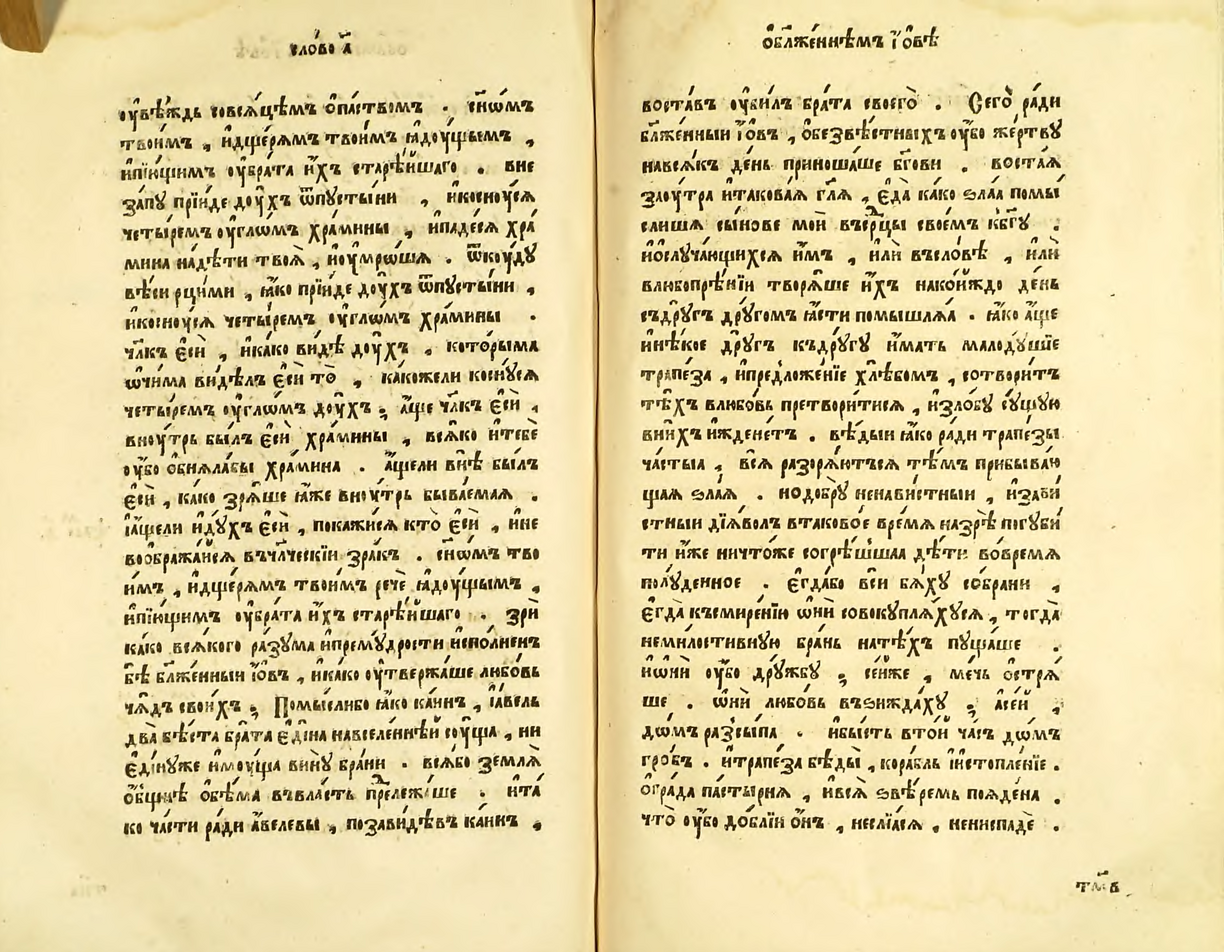 сло́во а҃
ѹ҆вѣ́ждь совсѧ́цѣмъ ѻ҆па́ствомъ . сн҃ѡ́мъ
твои́мъ , и҆дще́рѧмъ твои́мъ ꙗ҆дꙋ́щымъ ,
и҆пїю́щимъ ѹ҆бра́та и҆́хъ старѣ́йшаго . вне
за́пꙋ прїи́де дꙋ́хъ ѿпꙋсты́ни , и҆коснꙋ́сѧ
четы́ремъ ѹ҆гло́мъ хра́мины , и҆паде́сѧ хра́
мина надѣ́ти твоѧ̀ , и҆ѹ҆мро́шѧ . ѿкꙋ́дꙋ
вѣ́си рци́ми , ꙗ҆́ко прїи́де дꙋ́хъ ѿпꙋсты́ни ,
и҆коснꙋ́сѧ четы́ремъ ѹ҆гло́мъ хра́мины .
чл҃къ є҆сѝ , и҆ка́ко ви́дѣ дꙋ́хъ , кото́рыма
ѻ҆чи́ма ви́дѣлъ є҆сѝ то̀ , ка́кожели коснꙋ́сѧ
четы́ремъ ѹ҆гло́мъ дꙋ́хъ ; а҆́ще чл҃къ є҆сѝ ,
внꙋ́трь бы́лъ є҆сѝ хра́мины , всѧ́ко и҆тебѐ
ѹ҆́бо ѻ҆бнѧла́бы хра́мина . а҆́щели внѣ̀ бы́лъ
є҆сѝ , ка́ко зрѧ́ше ꙗ҆́же внꙋ́трь быва́емаѧ .
і҆а҆́щели и҆дꙋ́хъ є҆сѝ , покажи́сѧ кто̀ є҆сѝ , и҆не
воѡбража́йсѧ въчл҃ческїи зра́къ . сн҃ѡ́мъ тво
и́мъ , и҆дще́рѧмъ твои́мъ речѐ ꙗ҆дꙋ́щымъ ,
и҆пїю́щимъ ѹ҆бра́та и҆́хъ старѣ́йшаго . зрѝ
ка́ко всѧ́кого ра́зꙋма и҆премꙋ́дрости и҆спо́лненъ
бѣ̀ бл҃же́нныи і҆ѻ́въ , и҆ка́ко ѹ҆твержа́ше любо́вь
чѧ́дъ свои́хъ ; Помы́слибо ꙗ҆́ко ка́инъ , і҆а҆́вель
два̀ бѣ́ста бра́та є҆ди́на навселе́ннѣй сꙋ́ща , ни
є҆ди́нꙋже и҆мꙋ́ща винꙋ̀ бра́ни . всѧ́бо землѧ̀
ѻ҆́бщнѣ ѻ҆бѣ́ма въвла́сть прⷣлежа́ше . и҆та́
ко ча́сти ра́ди а҆́велевы , позави́дѣвъ ка́инъ ,
ѻ҆бл҃же́ннѣмъ і҆ѻ́вѣ
воста́въ ѹ҆би́лъ бра́та своего̀ . Сего̀ ра́ди
бл҃же́нныи і҆ѻ́въ , ѻ҆безвѣ́стныхъ ѹ҆́бо же́ртвꙋ
навсѧ́къ де́нь приноша́ше бг҃ови . воста́ѧ
заꙋ́тра и҆такова́ѧ гл҃ѧ , є҆да̀ ка́ко ѕла́ѧ помы́
слишѧ сы́нове моѝ въсрⷣцы свое́мъ къбг҃ꙋ .
и҆послꙋча́ющихсѧ и҆́мъ , и҆лѝ въсло́вѣ , и҆лѝ
влюбопрѣ́нїи творѧ́ше и҆́хъ нако́йждо де́нь
съдрꙋ́гъ дрꙋ́гомъ ꙗ҆́сти помышлѧ́ѧ . ꙗ҆́ко а҆́ще
и҆нѣ́кое дрꙋ́гъ къдрꙋ́гꙋ и҆́мать малодꙋ́шїе
трапе́за , и҆предложе́нїе хлѣ́бомъ , сотвори́тъ
тѣ́хъ влюбо́вь претвори́тисѧ , и҆зло́бꙋ сꙋ́щꙋю
вни́хъ и҆ждене́тъ . вѣ́дыи ꙗ҆́ко ра́ди трапе́зы
ча́стыѧ , всѧ̀ разорѧ́ютъсѧ тѣ́мъ прибыва́ю
щаѧ ѕла́ѧ . нодобрꙋ̀ ненави́стныи , и҆за́ви
стныи дїѧ́волъ втаково́е вре́мѧ назрѣ̀ погꙋби́
ти и҆́же ничто́же согрѣ́шшаѧ дѣ́ти вовре́мѧ
полꙋ́денное . є҆гда́бо всѝ бѧ́хꙋ со́брани ,
є҆гда̀ късмире́нїю ѻ҆нѝ совокꙋплѧ́хꙋсѧ , тогда̀
неми́лостивнꙋю бра́нь натѣ́хъ пꙋща́ше .
и҆ѻ҆нѝ ѹ҆́бо дрꙋ́жбꙋ ; се́йже , ме́чь ѻ҆стрѧ́
ше . ѻ҆нѝ любо́вь въѕижда́хꙋ ; а҆се́й ,
до́мъ разсы́па . и҆бы́сть вто́й ча́съ до́мъ
гро́бъ . и҆трапе́за бѣды̀ , кора́бль и҆и҆стопле́нїе .
ѻ҆гра́да па́стырнѧ , и҆всѧ̀ ѕвѣ́ремь поѧ́дена .
что̀ ѹ҆́бо до́блїи ѻ҆́нъ , несл҃ѧсѧ , нениспадѐ .